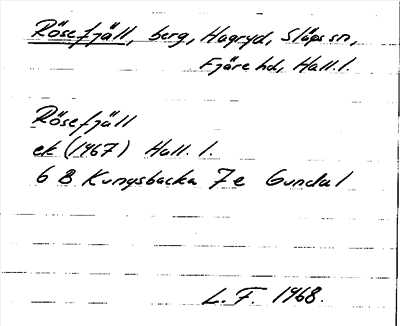 Rösefjäll, berg, Hagryd, Släps sn,
Fjäre hd, Hall. l.
Rösefjäll
ek (1967) Hall. l.
6 B Kungsbacka 7e Gundal
L. F. 1968.